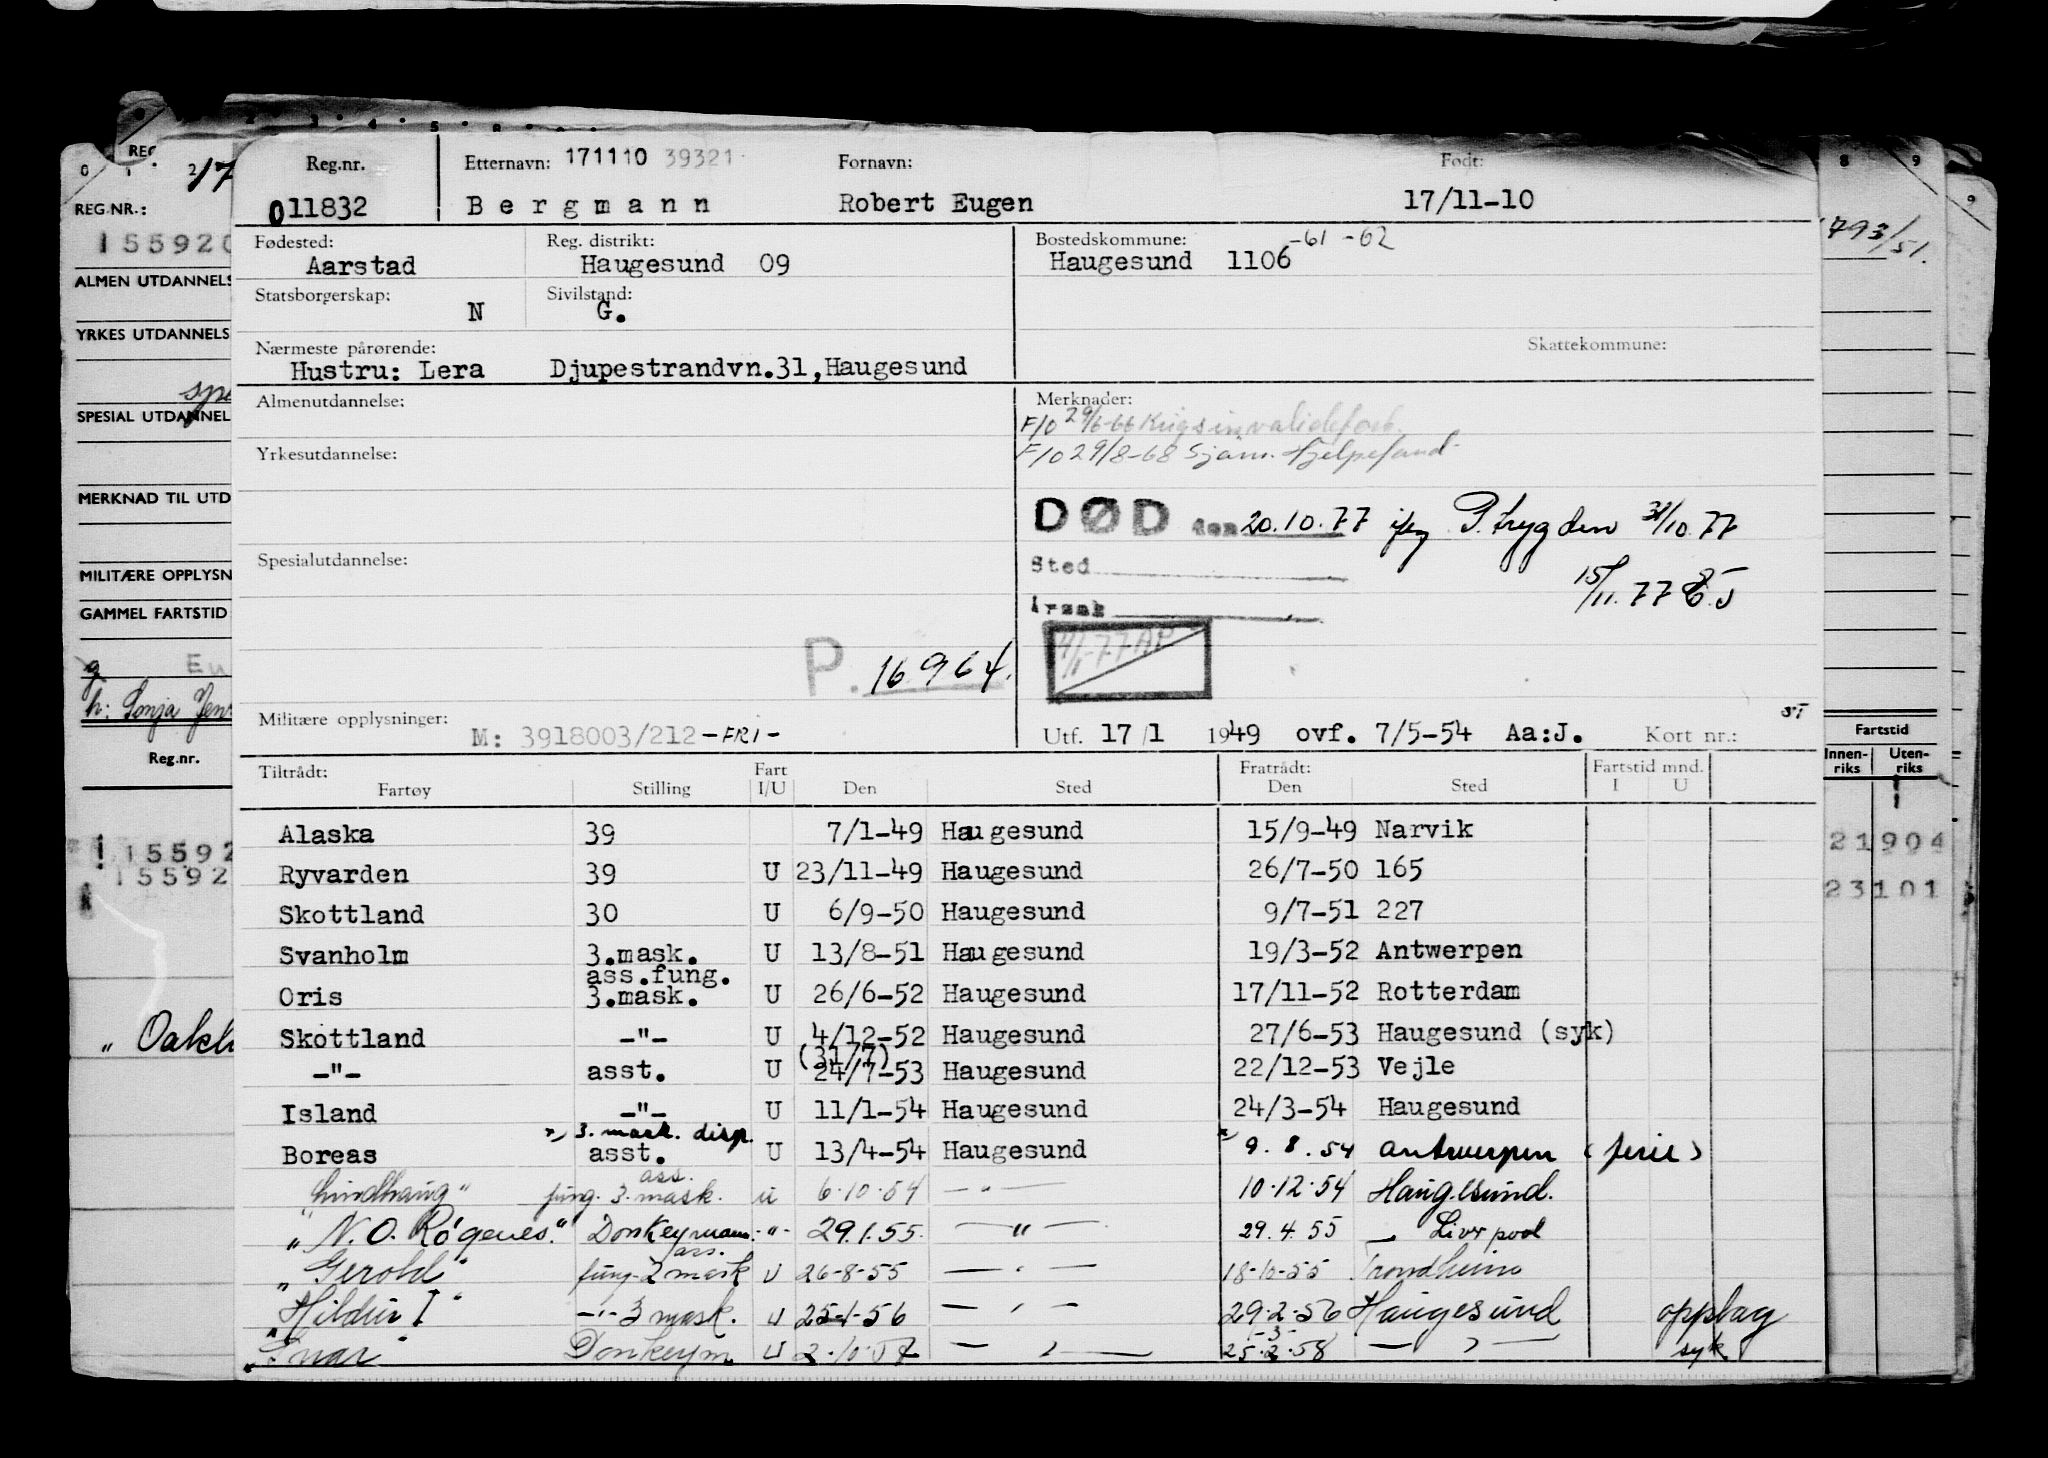 Reg.nr. Etternavn: 171110 39321 Fornavn: Født:
011832 Bergmann Robert Eugen 17/11-10
Fødested: Reg. distrikt: Bostedskommune: -61 -62
Aarstad Haugesund 09 Haugesund 1106
Statsborgerskap: Sivilstand:
N G.
Nærmeste pårørende: Skattekommune:
Hustru: Lera Djupestrandvn.31,Haugesund
Almenutdannelse: Merknader:
F/O 29/6-66 Krigsinvalideforb.
Yrkesutdannelse: F/O 29/8-68 Sjøm. Hjelpefond
DØD den 20.10.77 ifflg P.trygden 31/10.77
Spesialutdannelse: Sted
15/11.77
Årsak
P. 16964.
Militære opplysninger: M: 3918003/212 -FRI- Utf. 17/1 1949 ovf. 7/5-54 Aa:J. Kort nr.:
Tiltrådt: Fart Fratrådt: Fartstid mnd.
Fartøy Stilling I/U Den Sted Den Sted I U
Alaska 39 7/1-49 Haugesund 15/9-49 Narvik
Ryvarden 39 U 23/11-49 Haugesund 26/7-50 165
Skottland 30 U 6/9-50 Haugesund 9/7-51 227
Svanholm 3.mask. U 13/8-51 Haugesund 19/3-52 Antwerpen
ass.fung.
Oris 3.mask. U 26/6-52 Haugesund 17/11-52 Rotterdam
Skottland -"- U 4/12-52 Haugesund 27/6-53 Haugesund (syk)
(31/7)
-"- asst. U 24/7-53 Haugesund 22/12-53 Vejle
Island -"- U 11/1-54 Haugesund 24/3-54 Haugesund
x) 3. mask. disp.
Boreas asst. U 13/4-54 Haugesund x) 9.8.54 Antwerpen (ferie)
ass.
"Lindhaug" fung. 3. mask. u 6.10.54 -"- 10.12.54 Haugesund.
"N.O. Røgenes." Donkeymann. -"- 29.1.55. -"- 29.4.55 Liverpool
ass.
"Gerold" fung. 2 mask U 26-8-55 -"- 18-10-55 Trondheim
"Hildur I" -"- 3 mask. U 25-1-56 -"- 29-2-56 Haugesund opplag
Donkeym U 2.10.57 -"- 25.2.58 -"- syk
REG.NR.:
ALMEN UTDANNELS
YRKES UTDANNELS
SPESIAL UTDANNEL
MERKNAD TIL UTD
MILITÆRE OPPLYSN
GAMMEL FARTSTID
g Eu
h: Sonja
Reg.nr.
15592
15592
793/51.
Fartstid
Innen-riks Uten-riks
21904
23101